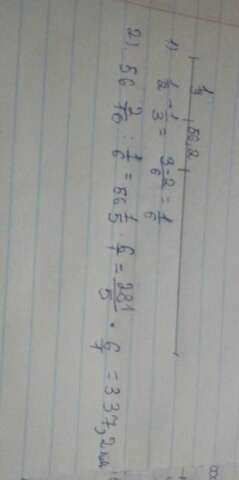 1/3 56,2
1) 1/2 - 1/3 = 3-2/6 = 1/6
2) 56 2/10 : 1/6 = 56 1/5 · 6/1 = 281/5 · 6/1 = 337,2 км